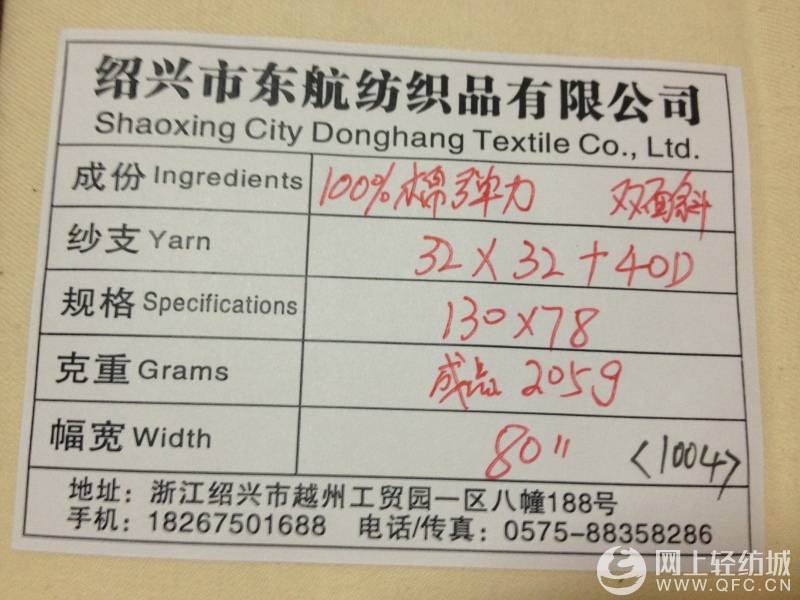 绍兴市东航纺织品有限公司
Shaoxing City Donghang Textile Co., Ltd.
成份 Ingredients 100%棉弹力 双面斜
纱支 Yarn 32×32+40D
规格 Specifications 130×78
克重 Grams 成品 205g
幅宽 Width 80" <1004>
地址: 浙江绍兴市越州工贸园一区八幢188号
手机: 18267501688 电话/传真: 0575-88358286
网上轻纺城
WWW.QFC.CN